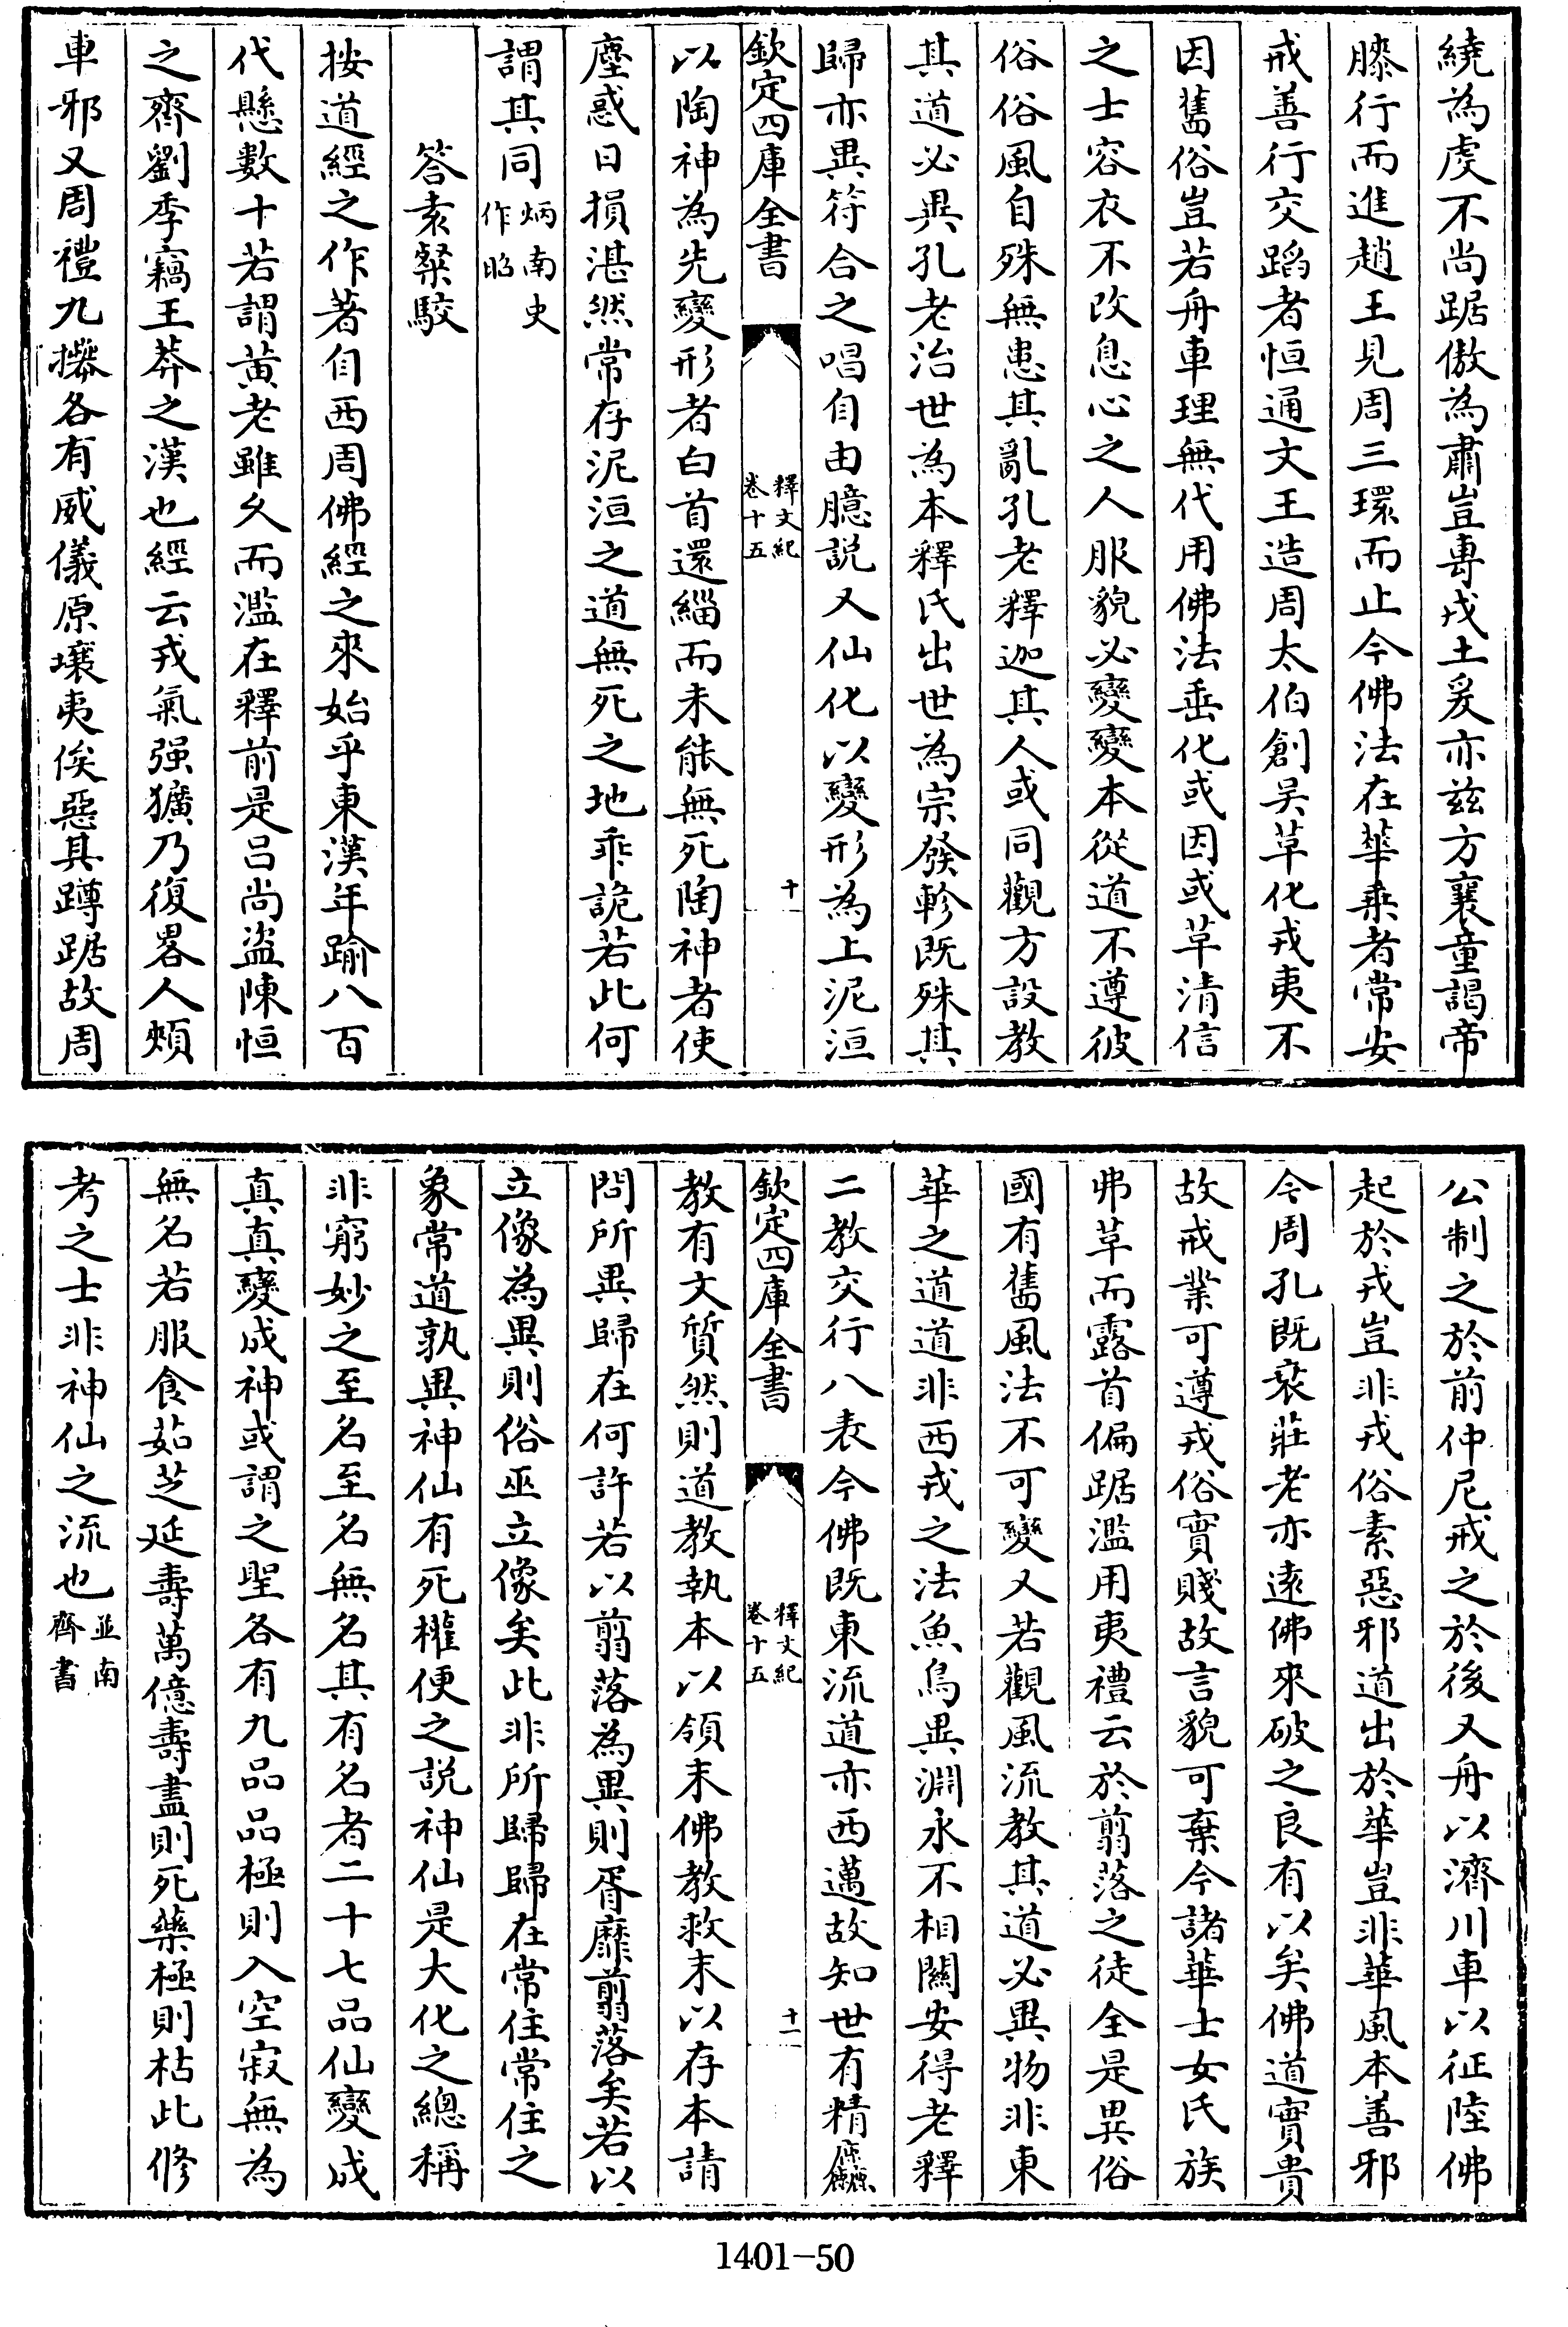 繞為虔不尚踞傲為肅豈專戎土爰亦茲方襄童謁帝
膝行而進趙王見周三環而止今佛法在華乘者常安
戒善行交蹈者恒通文王造周太伯創吳革化戎夷不
因舊俗豈若舟車理無代用佛法垂化或因或革清信
之士容衣不改息心之人服貌必變變本從道不遵彼
俗俗風自殊無患其亂孔老釋迦其人或同觀方設教
其道必異孔老治世為本釋氏出世為宗發軫既殊其
歸亦異符合之唱自由臆說又仙化以變形為上泥洹
欽定四庫全書 釋文紀 卷十五 十
以陶神為先變形者白首還緇而未能無死陶神者使
塵惑日損湛然常存泥洹之道無死之地乖詭若此何
謂其同 炳南史作昭
答袁粲駮
按道經之作著自西周佛經之來始乎東漢年踰八百
代懸數十若謂黃老雖久而濫在釋前是呂尚盜陳恒
之齊劉季竊王莽之漢也經云戎氣强獷乃復畧人頰
車邪又周禮九𢷎各有威儀原壤夷俟惡其蹲踞故周
公制之於前仲尼戒之於後又舟以濟川車以征陸佛
起於戎豈非戎俗素惡邪道出於華豈非華風本善邪
今周孔既衰莊老亦遠佛來破之良有以矣佛道實貴
故戒業可遵戎俗實賤故言貌可棄今諸華士女氏族
弗革而露首偏踞濫用夷禮云於翦落之徒全是異俗
國有舊風法不可變又若觀風流教其道必異物非東
華之道道非西戎之法魚鳥異淵永不相關安得老釋
二教交行八表今佛既東流道亦西邁故知世有精麤
欽定四庫全書 釋文紀 卷十五 十一
教有文質然則道教執本以領末佛教救末以存本請
問所異歸在何許若以翦落為異則胥靡翦落矣若以
立像為異則俗巫立像矣此非所歸歸在常住常住之
象常道孰異神仙有死權便之說神仙是大化之總稱
非窮妙之至名至名無名其有名者二十七品仙變成
真真變成神或謂之聖各有九品品極則入空寂無為
無名若服食茹芝延壽萬億壽盡則死藥極則枯此修
考之士非神仙之流也 並南齊書
1401-50